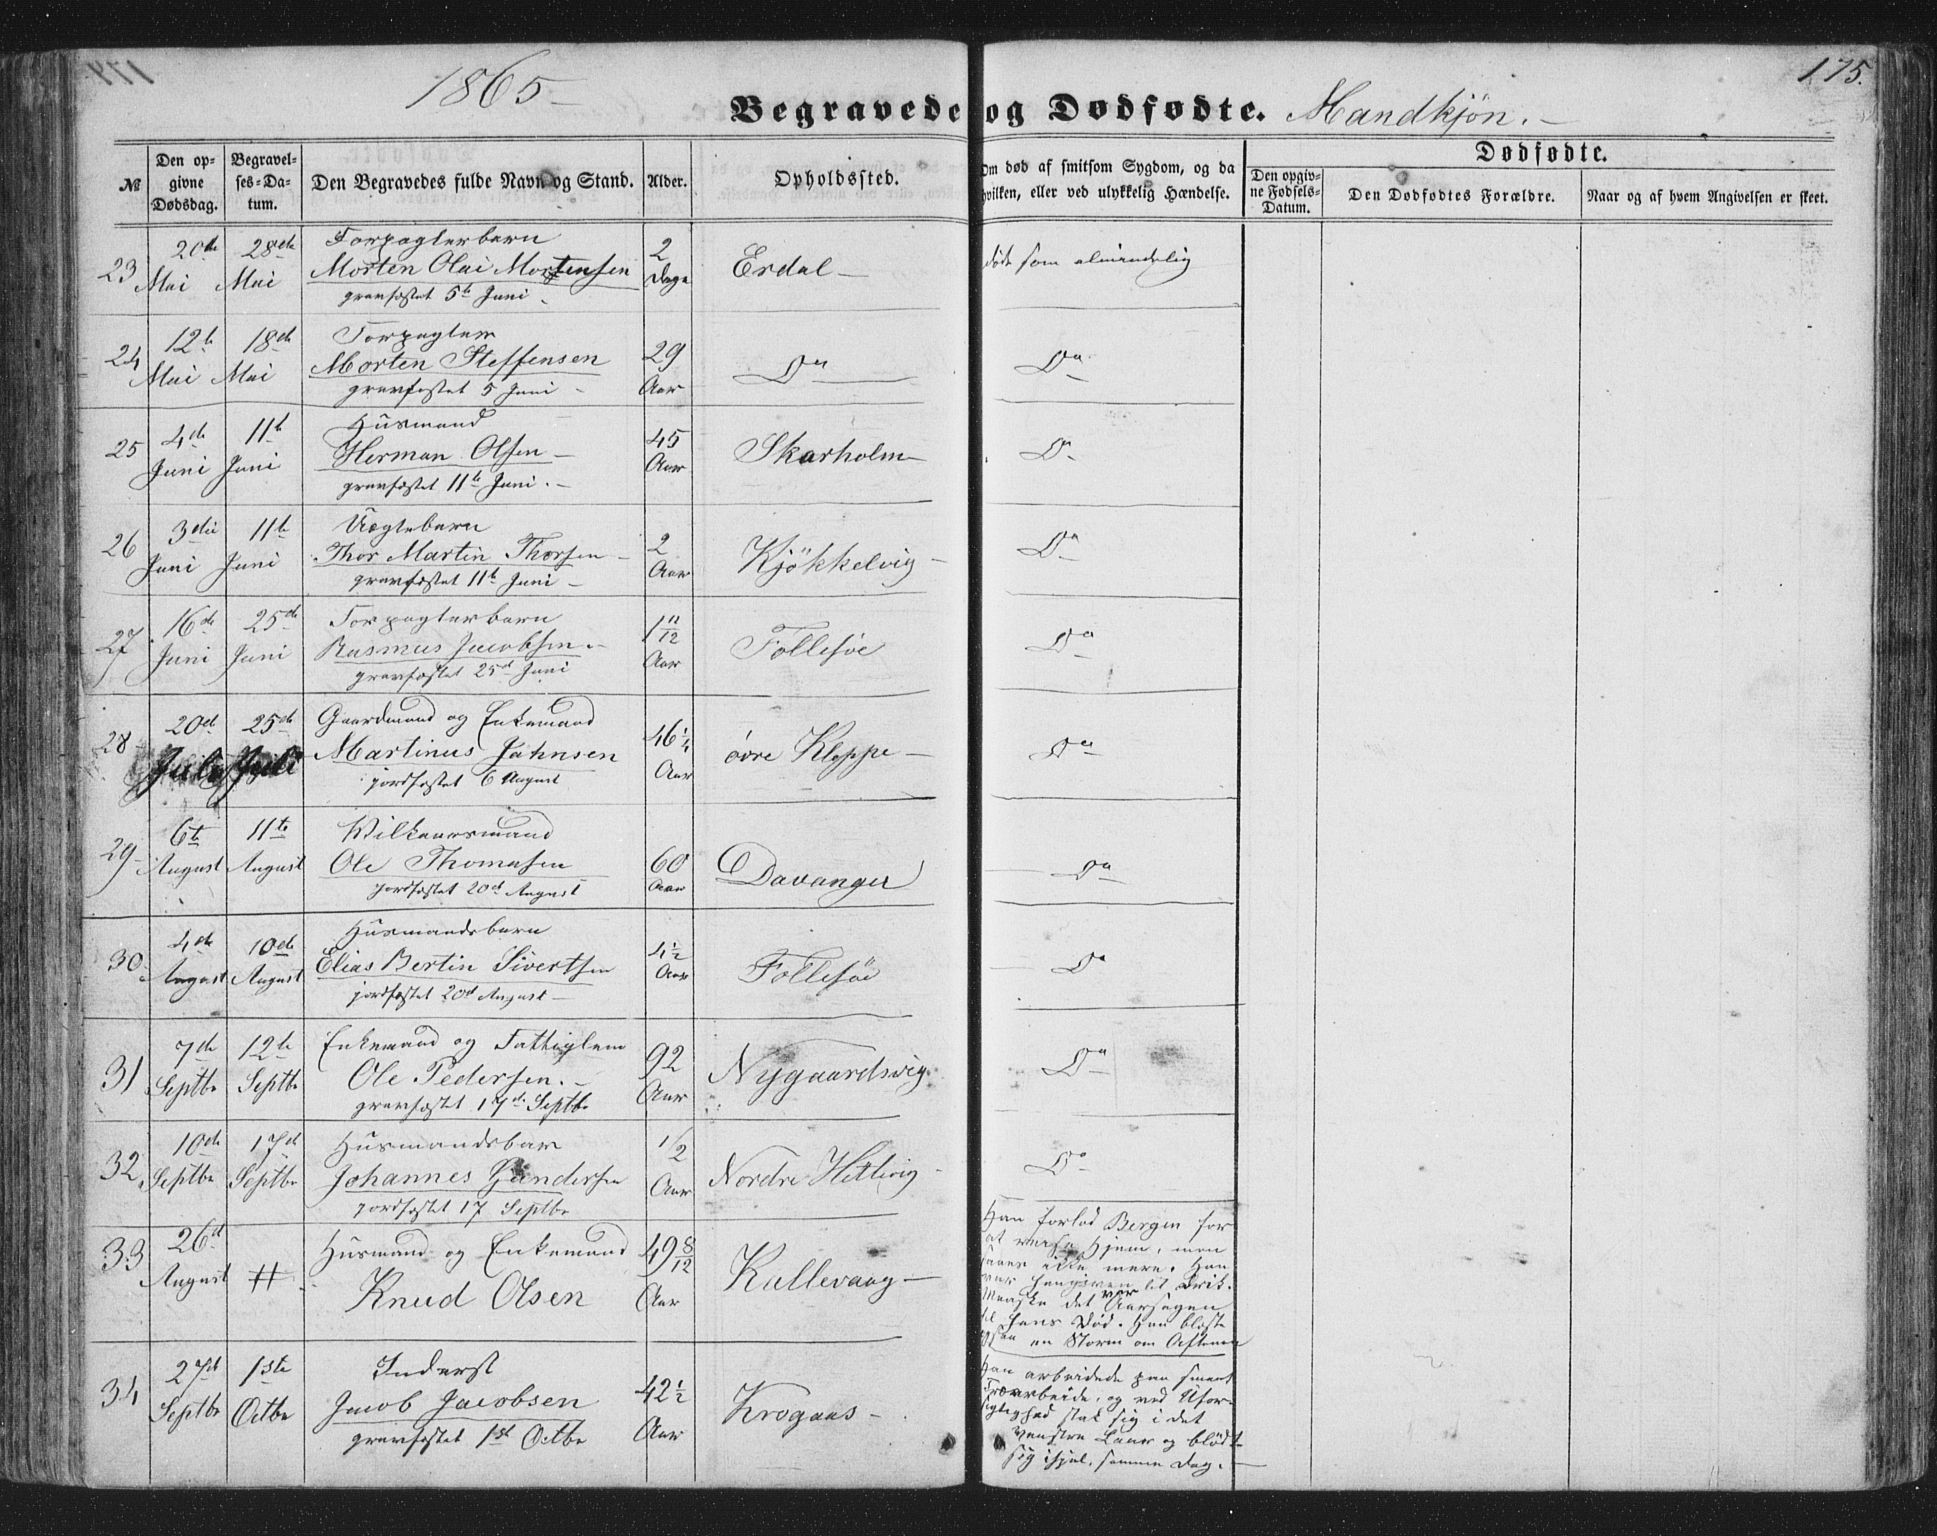 1865
175.
Begravede og Dødfødte. Mandkjön.
№
Den opgivne Dødsdag.
Begravelses-Datum.
Den Begravedes fulde Navn og Stand.
Alder.
Opholdssted.
Om død af smitsom Sygdom, og da hvilken, eller ved ulykkelig Hændelse.
Dødfødte.
Den opgivne Fødsels-Datum.
Den Dødfødtes Forældre.
Naar og af hvem Angivelsen er skeet.
23 20de Mai 28de Mai Forpagterbarn
Morten Olai Mortensen 2 Dage Erdal døde som almindelig
gravfæstet 5te Juni
24 12te Mai 18de Mai Forpagter
Morten Steffensen 29 Aar Do Do
gravfæstet 5 Juni
25 4de Juni 11te Juni Husmand
Herman Olsen 45 Aar Skarholm Do
gravfæstet 11te Juni
26 3die Juni 11te Juni
Thor Martin Thorsen 2 Aar Kjökkelvig Do
gravfæstet 11te Juni
27 16de Juni 25de Juni Forpagterbarn
Rasmus Jacobsen 1 11/12 Aar Follesöe Do
gravfæstet 25de Juni
28 20de Juli 25de Juli Gaardmand og Enkemand
Martinus Jahnsen 46 1/4 Aar övre Kleppe Do
jordfæstet 6 August
29 6te August 11te August Vilkaarsmand
Ole Thomasen 60 Aar Davanger Do
jordfæstet 20de August
30 4de August 10de August Husmandsbarn
Elias Bertin Sivertsen 4 1/2 Aar Follesöe Do
jordfæstet 20de August
31 7de Septbr 12te Septbr Enkemand og Fattiglem
Ole Pedersen 92 Aar Nygaardsvig Do
gravfæstet 17de Septbr
32 10de Septbr 17de Septbr Husmandsbarn
Johannes Gundersen 1/2 Aar Nordre Hetlevig Do
jordfæstet 17 Septbr
33 26de August # Husmand og Enkemand
Knud Olsen 49 8/12 Aar Kallevaag
Han forlod Bergen for
at reise Hjem, men
saaes ikke mere. Han
var hengiven til Drik.
Maaske det var Aarsagen
til hans Død. Han blæste
en Storm om Aftenen
34 27de Septbr 1ste Octbr Inderst
Jacob Jacobsen 42 1/2 Aar Krogaas
gravfæstet 1ste Octbr
Han arbeidede paa smaat
Træarbeide, og ved Ufor-
sigtighed stak sig i det
venstre Laar og blödte
sig ihjel, samme Dag.